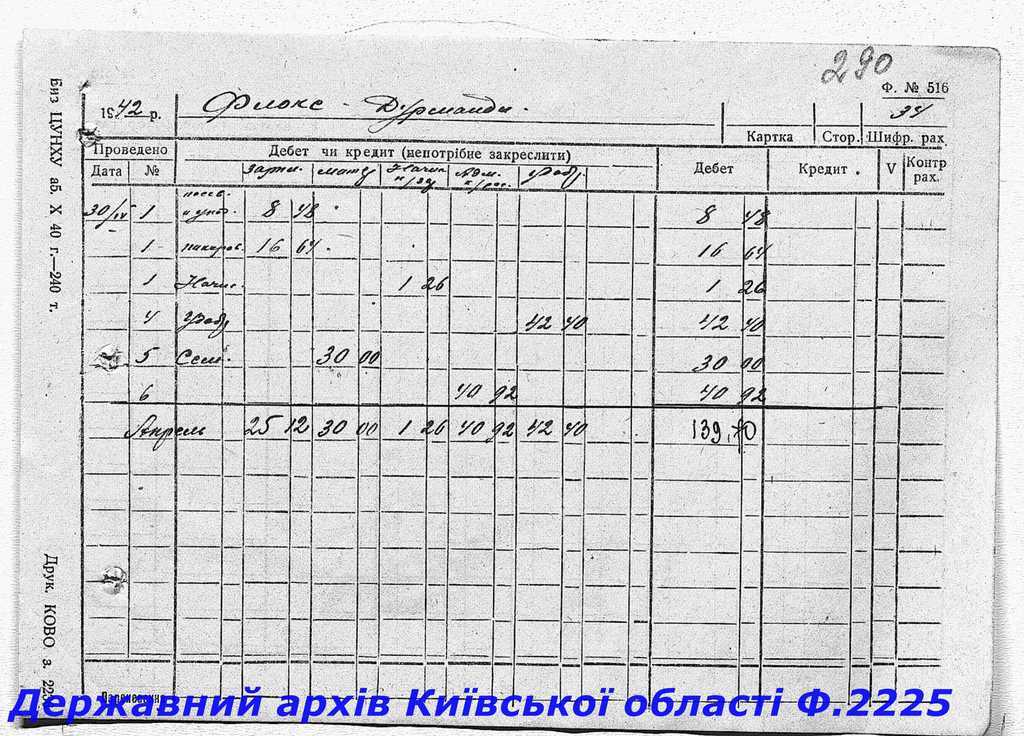 290
Ф. № 516
1942 р. Флокс - Дурманди. 34
Картка Стор. Шифр. рах.
Проведено Дебет чи кредит (непотрібне закреслити) Дебет Кредит. V Контр рах.
Дата №
30/IV 1 8 48 8 48
1 пикиров. 16 64 16 64
1 Начис. 1 26 1 26
4 42 40 42 40
5 Сем. 30 00 30 00
6 40 92 40 92
Апрель 25 12 30 00 1 26 40 92 42 40 139,70
Биз ЦУНХУ аб. X 40 г.—240 т.
Друк. КОВО з. 22
Державний архів Київської області Ф.2225